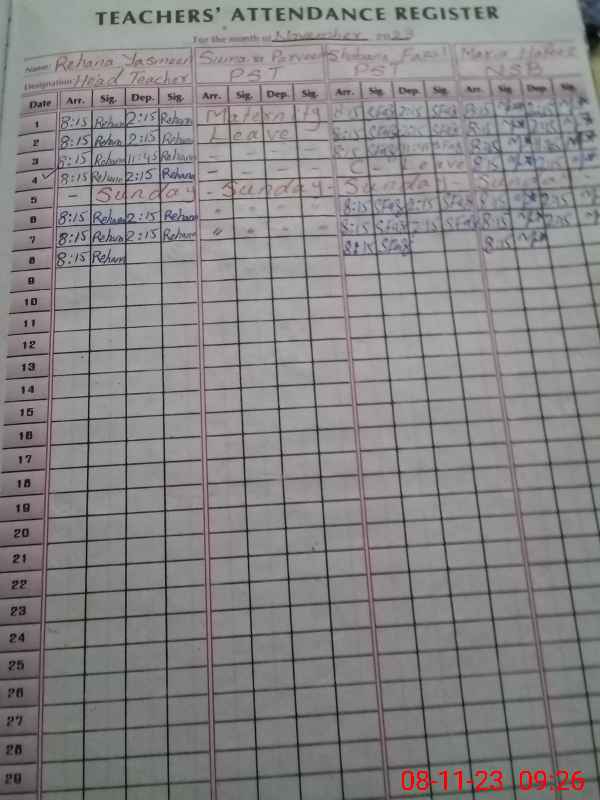 TEACHERS' ATTENDANCE REGISTER
For the month of November 2023
Name: Rehana Yasmeen Parveen Shabana Fazal Maria Hafeez
Designation: Head Teacher PST PST
Date Arr. Sig. Dep. Sig. Arr. Sig. Dep. Sig. Arr. Sig. Dep. Sig. Arr. Sig. Dep. Sig.
1 8:15 Rehana 2:15 Rehana Maternity 8:15 SFaz 2:15 SFaz 8:15 2:15
2 8:15 Rehana 2:15 Rehana Leave 8:15 SFaz 2:15 SFaz 8:15 2:15
3 8:15 Rehana 11:45 Rehana - - - - 8:15 SFaz SFaz 8:15
4 8:15 Rehana 2:15 Rehana - - - - C - Leave 8:15
5 - Sunday - Sunday - Sunday - Sunday -
6 8:15 Rehana 2:15 Rehana " " " " 8:15 SFaz 2:15 SFaz 8:15 2:15
7 8:15 Rehana 2:15 Rehana " " " " 8:15 SFaz 2:15 SFaz 8:15 2:15
8 8:15 Rehana 8:15 SFaz 8:15
9
10
11
12
13
14
15
16
17
18
19
20
21
22
23
24
25
26
27
28
29
08-11-23 09:26